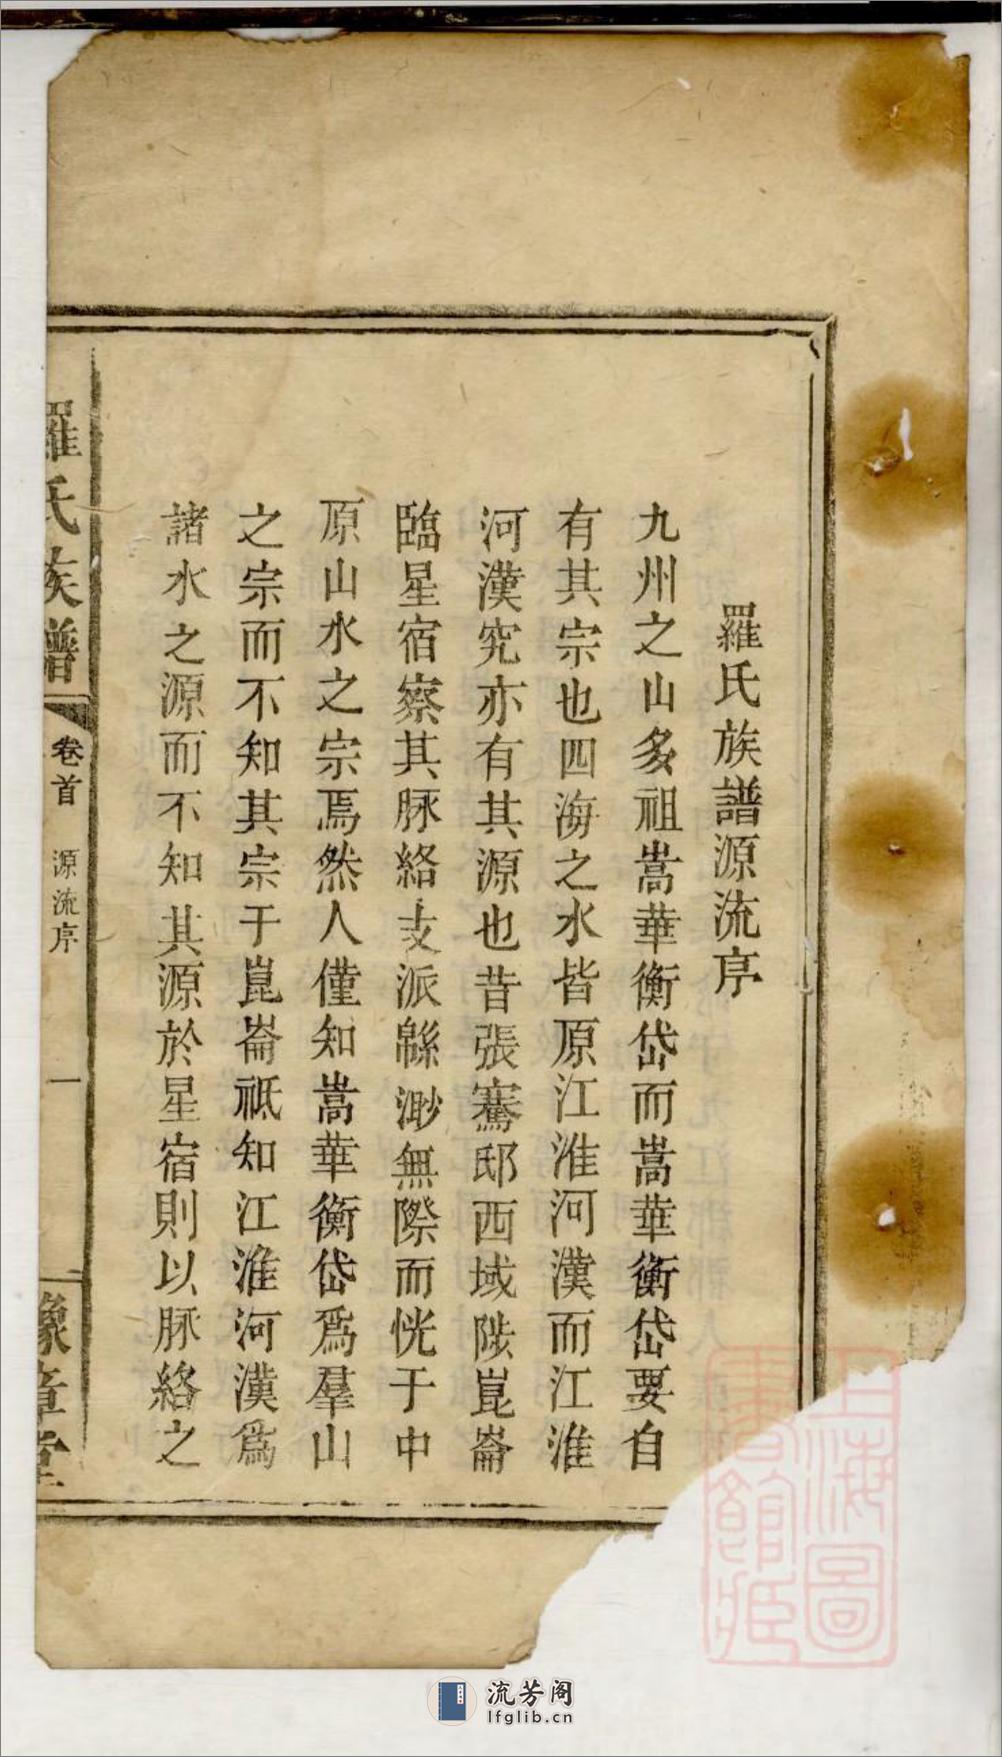 羅氏族譜源流序
九州之山多祖嵩華衡岱而嵩華衡岱要自
有其宗也四海之水皆原江淮河漢而江淮
河漢究亦有其源也昔張騫邸西域陟崑崙
臨星宿察其脉絡支派緜渺無際而恍于中
原山水之宗焉然人僅知嵩華衡岱爲羣山
之宗而不知其宗于崑崙祗知江淮河漢爲
諸水之源而不知其源於星宿則以脉絡之
羅氏族譜
卷首
源流序
一
豫章堂
上海圖
書館藏
流芳阁
lfglib.cn